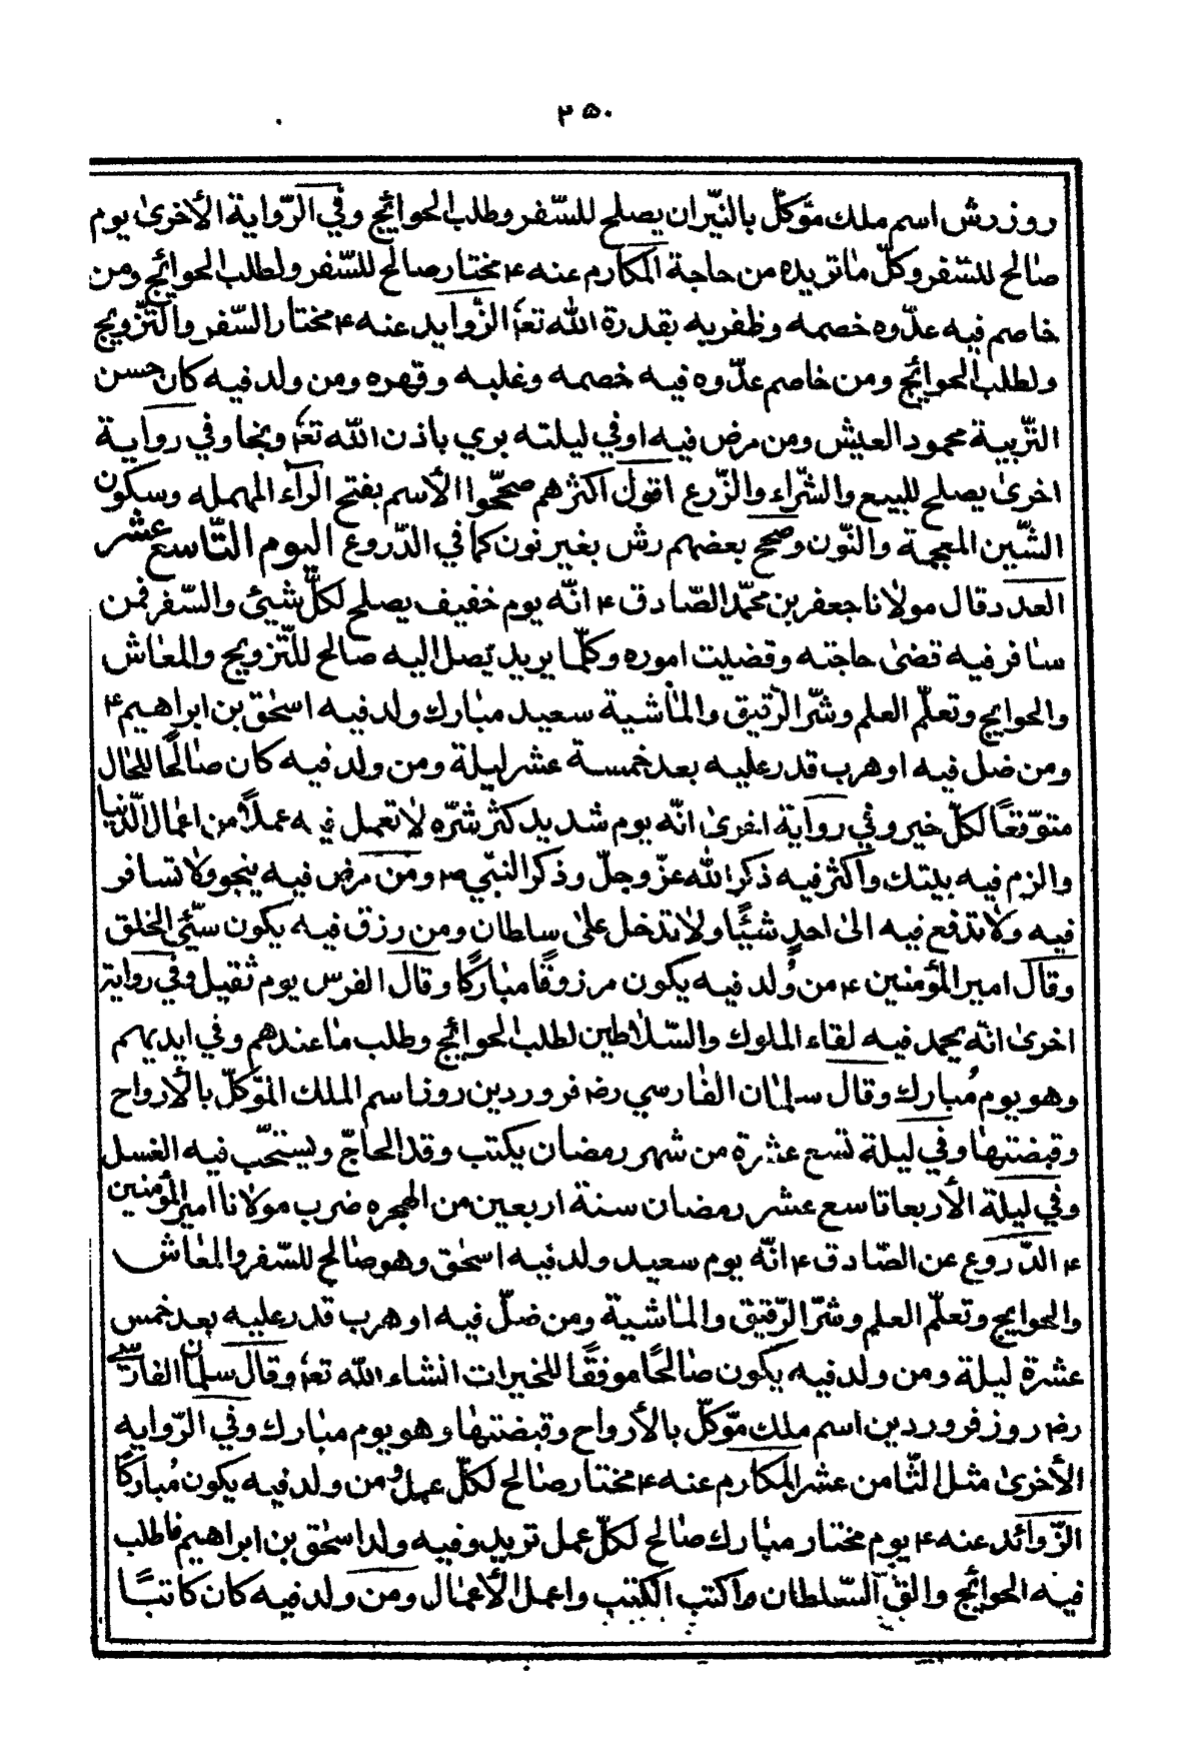 ٢٥٠
روز رش اسم ملك مؤكّل بالنّيران يصلح للسّفر وطلب الحوائج وفي الرّواية الأخرىٰ يوم
صٰالح للسّفر وكلّ مٰا تريده من حاجة المكارم عنه ۴ مختار صالح للسّفر ولطلب الحوائج ومن
خاصم فيه عدّوه خصمه وظفر به بقدرة الله تعٰ الزّوايد عنه ۴ مختار السّفر والتّزويج
ولطلب الحوائج ومن خاصم عدّوه فيه خصمه وغلبه وقهره ومن ولد فيه كان حسن
التّربية محمود العيش ومن مرض فيه اوفي ليلته بري باذن الله تعٰ ونجا وفي رواية
اخرىٰ يصلح للبيع والشّراء والزّرع اقول اكثرهم صحّحوا الأسم بفتح الرّاء المهمله وسكون
الشّين المعجمة والنّون وصحّح بعضهم رش بغير نون كما في الدّروع اليوم التّاسع عشر
العدد قال مولانا جعفر بن محمّد الصّادق ۴ انّه يوم خفيف يصلح لكلّ شيئ والسّفر فمن
سٰافر فيه قضىٰ حاجته وقضيت اموره وكلّما يريد يصل اليه صالح للتّزويج والمعٰاش
والحوايج وتعلّم العلم وشرّ الرّقيق والمٰاشية سعيد مبٰارك ولد فيه اسحٰق بن ابراهيم ۴
ومن ضلّ فيه او هرب قدر عليه بعد خمسة عشر ليلة ومن ولد فيه كان صٰالحًا للحٰال
متوّقعًا لكلّ خير وفي رواية اخرىٰ انّه يوم شديد كثر شرّه لا تعمل فيه عملًا من اعمٰال الدّنيا
والزم فيه بيتك واكثر فيه ذكر الله عزّوجلّ وذكر النبّي ص ومن مرض فيه ينجو ولا تسافر
فيه ولا تدفع فيه الىٰ احدٍ شيئًا ولا تدخل علىٰ سلطان ومن رزق فيه يكون سيّئ الخلق
وقال امير المؤمنين ۴ من وُلد فيه يكون مرزوقًا مبٰاركًا وقال الفرس يوم ثقيل وفي رواية
اخرىٰ انّه يحمد فيه لقاء الملوك والسّلاطين لطلب الحوائج وطلب مٰا عندهم وفي ايديهم
وهو يوم مُبارك وقال سلمٰان الفٰارسي رض فروردين روز اسم الملك المؤكّل بالأرواح
وقبضتهٰا وفي ليلة تسع عشرة من شهر رمضان يكتب وقد الحاجّ ويستحّب فيه الغسل
وفي ليلة الأربعا تاسع عشر رمضان سنة اربعين من الهجره ضرب مولانا امير المؤمنين
۴ الدّروع عن الصّادق ۴ انّه يوم سعيد ولد فيه اسحٰق وهو صٰالح للسّفر والمعٰاش
والحوايج وتعلّم العلم وشرّ الرّقيق والمٰاشية ومن ضلّ فيه او هرب قدر عليه بعد خمس
عشرة ليلة ومن ولد فيه يكون صٰالحًا موفقًا للخيرات انشاء الله تعٰ وقال سلمٰان الفارسّي
رض روز فروردين اسم ملك مؤكّل بالأرواح وقبضتهٰا وهو يوم مبٰارك وفي الرّوايه
الأخرىٰ مثل الثّامن عشر المكارم عنه ۴ مختار صٰالح لكلّ عمل ومن ولد فيه يكون مُباركًا
الزّوائد عنه ۴ يوم مختار مبٰارك صٰالح لكلّ عمل تريد وفيه ولد اسحٰق بن ابراهيم فاطلب
فيه الحوائج والق السّلطان واكتب الكتب واعمل الأعمٰال ومن ولد فيه كان كاتبًا